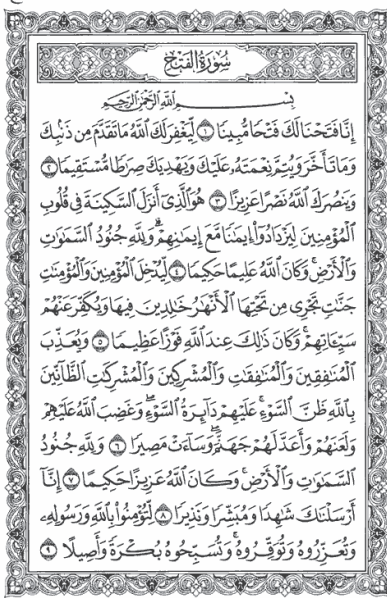 سُورَةُ الفَتْحِ
بِسْمِ اللَّهِ الرَّحْمَٰنِ الرَّحِيمِ
إِنَّا فَتَحْنَا لَكَ فَتْحًا مُّبِينًا ١ لِّيَغْفِرَ لَكَ اللَّهُ مَا تَقَدَّمَ مِن ذَنبِكَ
وَمَا تَأَخَّرَ وَيُتِمَّ نِعْمَتَهُۥ عَلَيْكَ وَيَهْدِيَكَ صِرَٰطًا مُّسْتَقِيمًا ٢
وَيَنصُرَكَ اللَّهُ نَصْرًا عَزِيزًا ٣ هُوَ الَّذِىٓ أَنزَلَ السَّكِينَةَ فِى قُلُوبِ
الْمُؤْمِنِينَ لِيَزْدَادُوٓا۟ إِيمَٰنًا مَّعَ إِيمَٰنِهِمْ ۗ وَلِلَّهِ جُنُودُ السَّمَٰوَٰتِ
وَالْأَرْضِ ۚ وَكَانَ اللَّهُ عَلِيمًا حَكِيمًا ٤ لِّيُدْخِلَ الْمُؤْمِنِينَ وَالْمُؤْمِنَٰتِ
جَنَّٰتٍ تَجْرِى مِن تَحْتِهَا الْأَنْهَٰرُ خَٰلِدِينَ فِيهَا وَيُكَفِّرَ عَنْهُمْ
سَيِّـَٔاتِهِمْ ۚ وَكَانَ ذَٰلِكَ عِندَ اللَّهِ فَوْزًا عَظِيمًا ٥ وَيُعَذِّبَ
الْمُنَٰفِقِينَ وَالْمُنَٰفِقَٰتِ وَالْمُشْرِكِينَ وَالْمُشْرِكَٰتِ الظَّآنِّينَ
بِاللَّهِ ظَنَّ السَّوْءِ ۚ عَلَيْهِمْ دَآئِرَةُ السَّوْءِ ۖ وَغَضِبَ اللَّهُ عَلَيْهِمْ
وَلَعَنَهُمْ وَأَعَدَّ لَهُمْ جَهَنَّمَ ۖ وَسَآءَتْ مَصِيرًا ٦ وَلِلَّهِ جُنُودُ
السَّمَٰوَٰتِ وَالْأَرْضِ ۚ وَكَانَ اللَّهُ عَزِيزًا حَكِيمًا ٧ إِنَّآ
أَرْسَلْنَٰكَ شَٰهِدًا وَمُبَشِّرًا وَنَذِيرًا ٨ لِّتُؤْمِنُوا۟ بِاللَّهِ وَرَسُولِهِۦ
وَتُعَزِّرُوهُ وَتُوَقِّرُوهُ ۚ وَتُسَبِّحُوهُ بُكْرَةً وَأَصِيلًا ٩